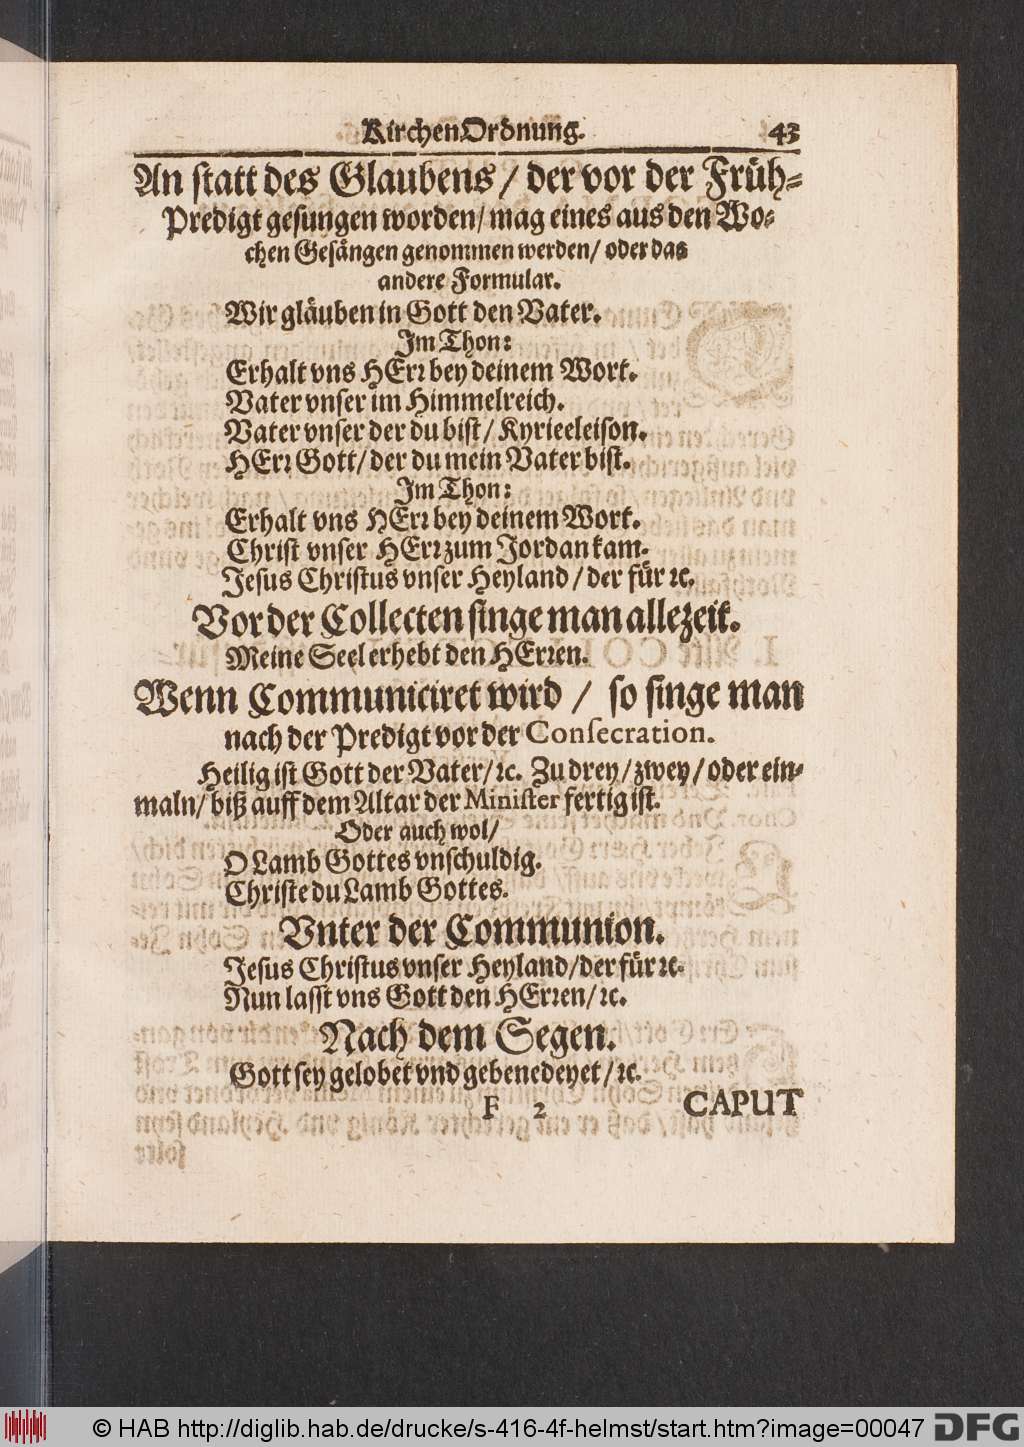 KirchenOrdnung. 43
An statt des Glaubens / der vor der Früh-
Predigt gesungen worden / mag eines aus den Wo-
chen Gesängen genommen werden / oder das
andere Formular.
Wir gläuben in Gott den Vater.
Im Thon:
Erhalt vns HErꝛ bey deinem Wort.
Vater vnser im Himmelreich.
Vater vnser der du bist / Kyrieeleison.
HErꝛ Gott / der du mein Vater bist.
Im Thon:
Erhalt vns HErꝛ bey deinem Wort.
Christ vnser HErꝛ zum Jordan kam.
Jesus Christus vnser Heyland / der für ꝛc.
Vor der Collecten singe man allezeit.
Meine Seel erhebt den HErꝛen.
Wenn Communiciret wird / so singe man
nach der Predigt vor der Consecration.
Heilig ist Gott der Vater / ꝛc. Zu drey / zwey / oder ein-
maln / biß auff dem Altar der Minister fertig ist.
Oder auch wol /
O Lamb Gottes vnschuldig.
Christe du Lamb Gottes.
Vnter der Communion.
Jesus Christus vnser Heyland / der für ꝛc.
Nun lasst vns Gott den HErꝛen / ꝛc.
Nach dem Segen.
Gott sey gelobet vnd gebenedeyet / ꝛc.
F 2 CAPUT
© HAB http://diglib.hab.de/drucke/s-416-4f-helmst/start.htm?image=00047 DFG